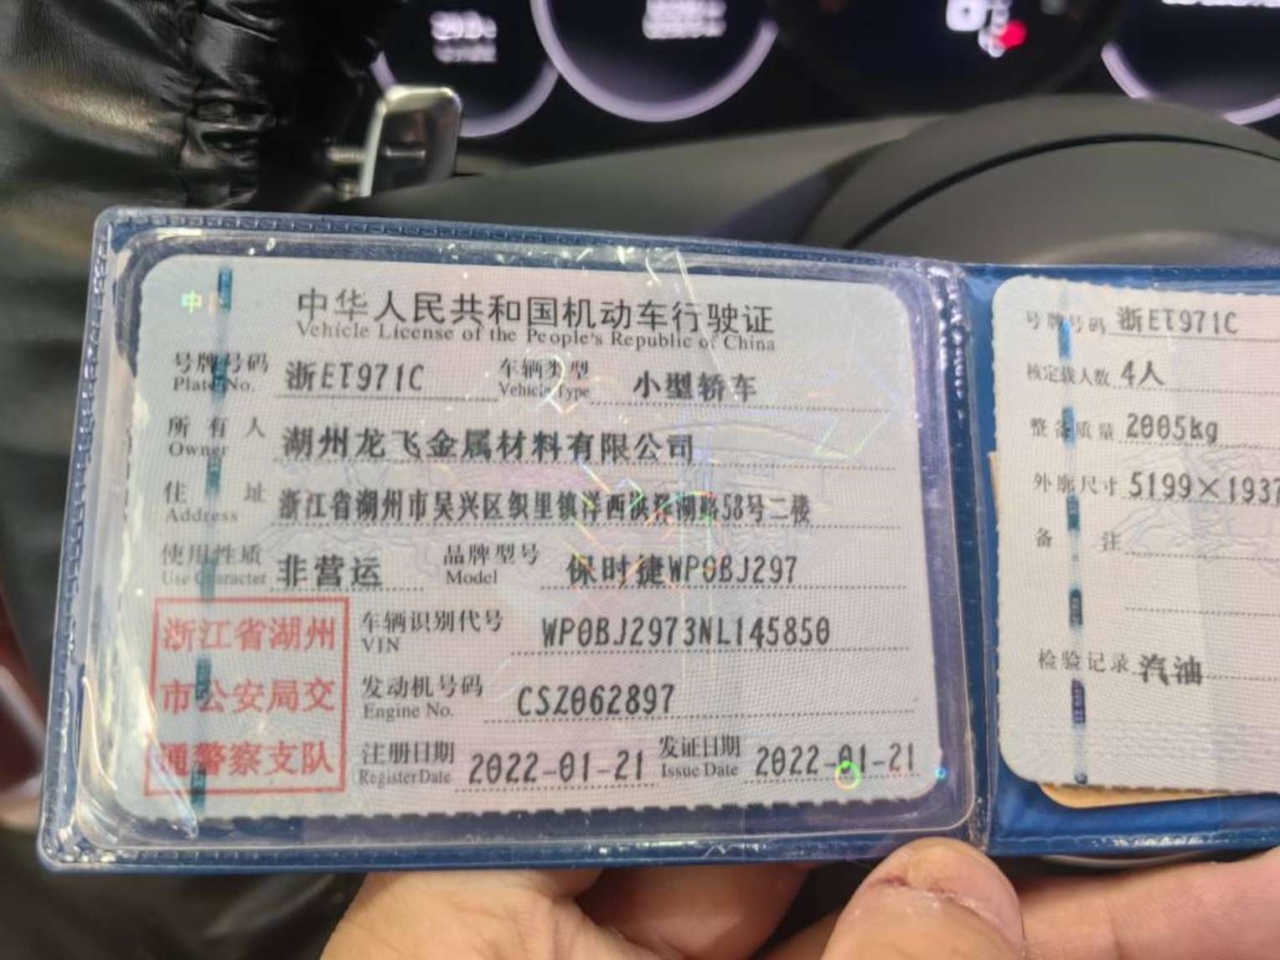 中华人民共和国机动车行驶证
Vehicle License of the People's Republic of China
号牌号码 浙ET971C 车辆类型 小型轿车
Plate No. Vehicle Type
所有人 湖州龙飞金属材料有限公司
Owner
住址 浙江省湖州市吴兴区织里镇洋西洪桥湖路58号二楼
Address
使用性质 非营运 品牌型号 保时捷WP0BJ297
Use Character Model
浙江省湖州
市公安局交
通警察支队
车辆识别代号 WP0BJ2973NL145850
VIN
发动机号码 CSZ062897
Engine No.
注册日期 2022-01-21 发证日期 2022-01-21
Register Date Issue Date
号牌号码 浙ET971C
核定载人数 4人
整备质量 2005kg
外廓尺寸 5199×1937
备注
检验记录 汽油